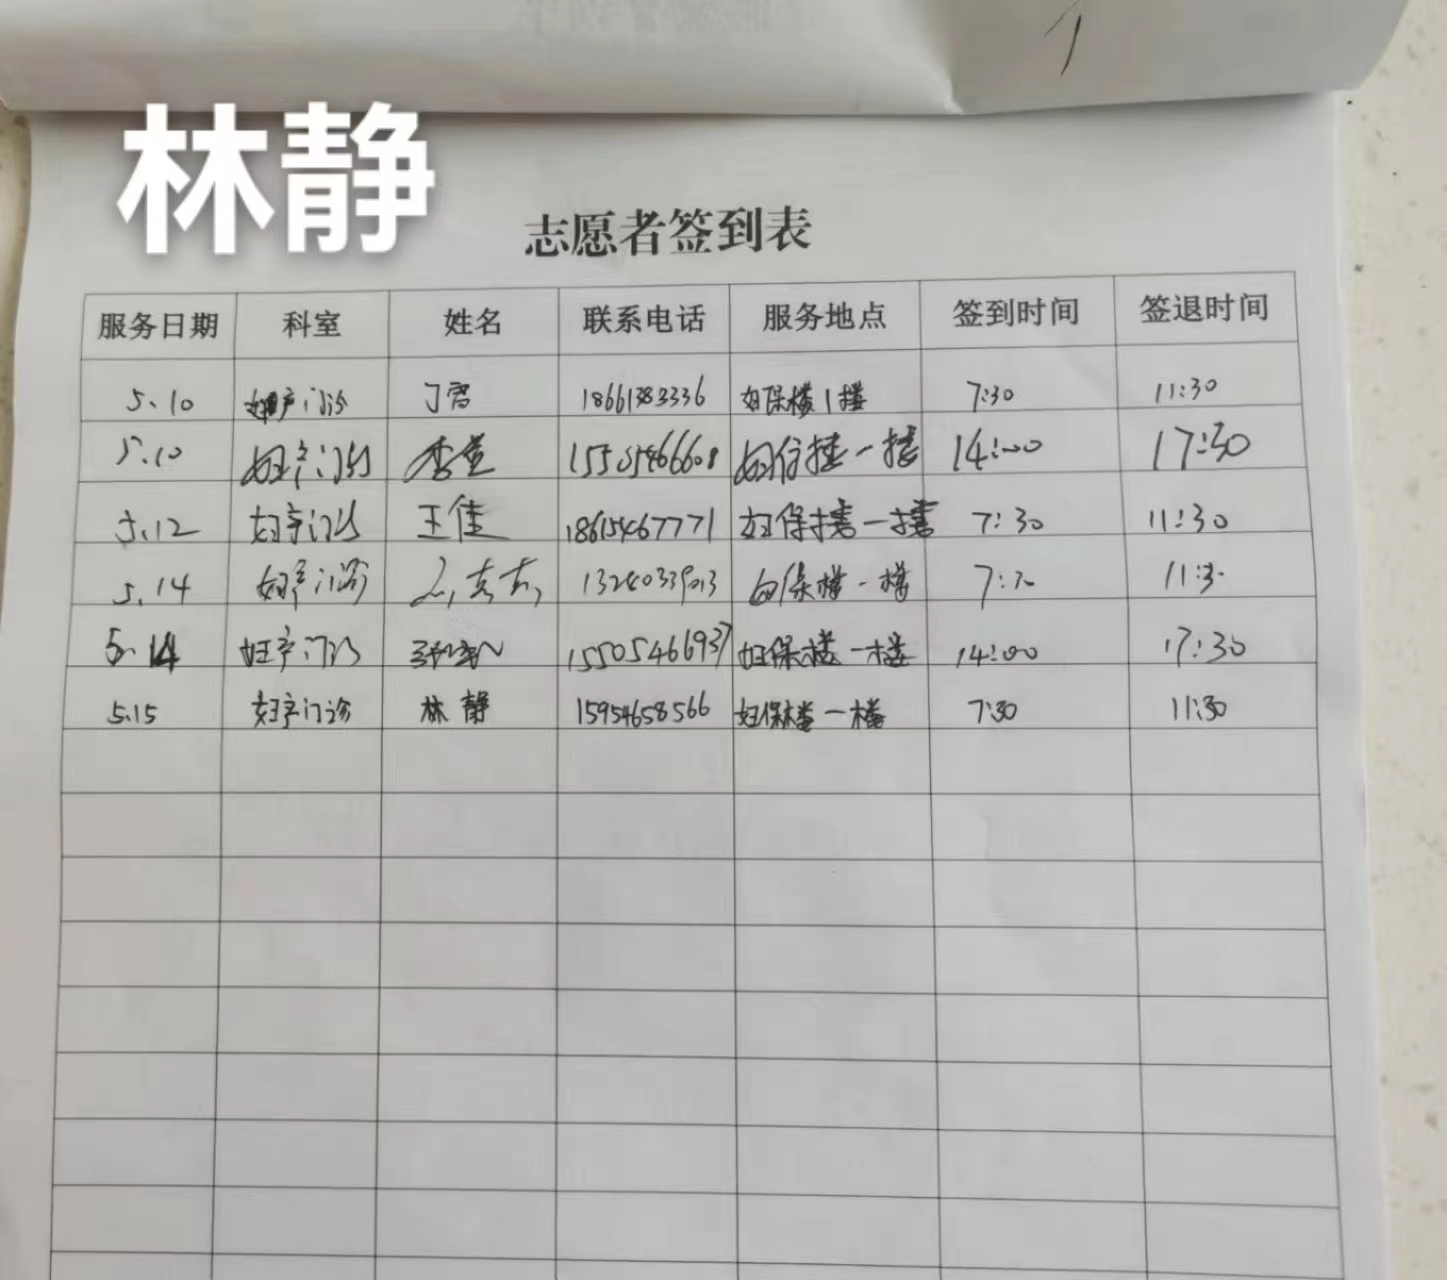 林静
志愿者签到表
服务日期 科室 姓名 联系电话 服务地点 签到时间 签退时间
5.10 妇产门诊 丁 18661383336 妇保楼1楼 7:30 11:30
5.10 妇产门诊 李 15505466608 一楼 14:00 17:30
5.12 妇产门诊 王佳 18615467771 妇保楼一楼 7:30 11:30
5.14 妇产门诊 妇保楼一楼 7:30 11:30
5.14 妇产门诊 15505466937 妇保楼一楼 14:00 17:30
5.15 妇产门诊 林静 15954658566 妇保楼一楼 7:30 11:30